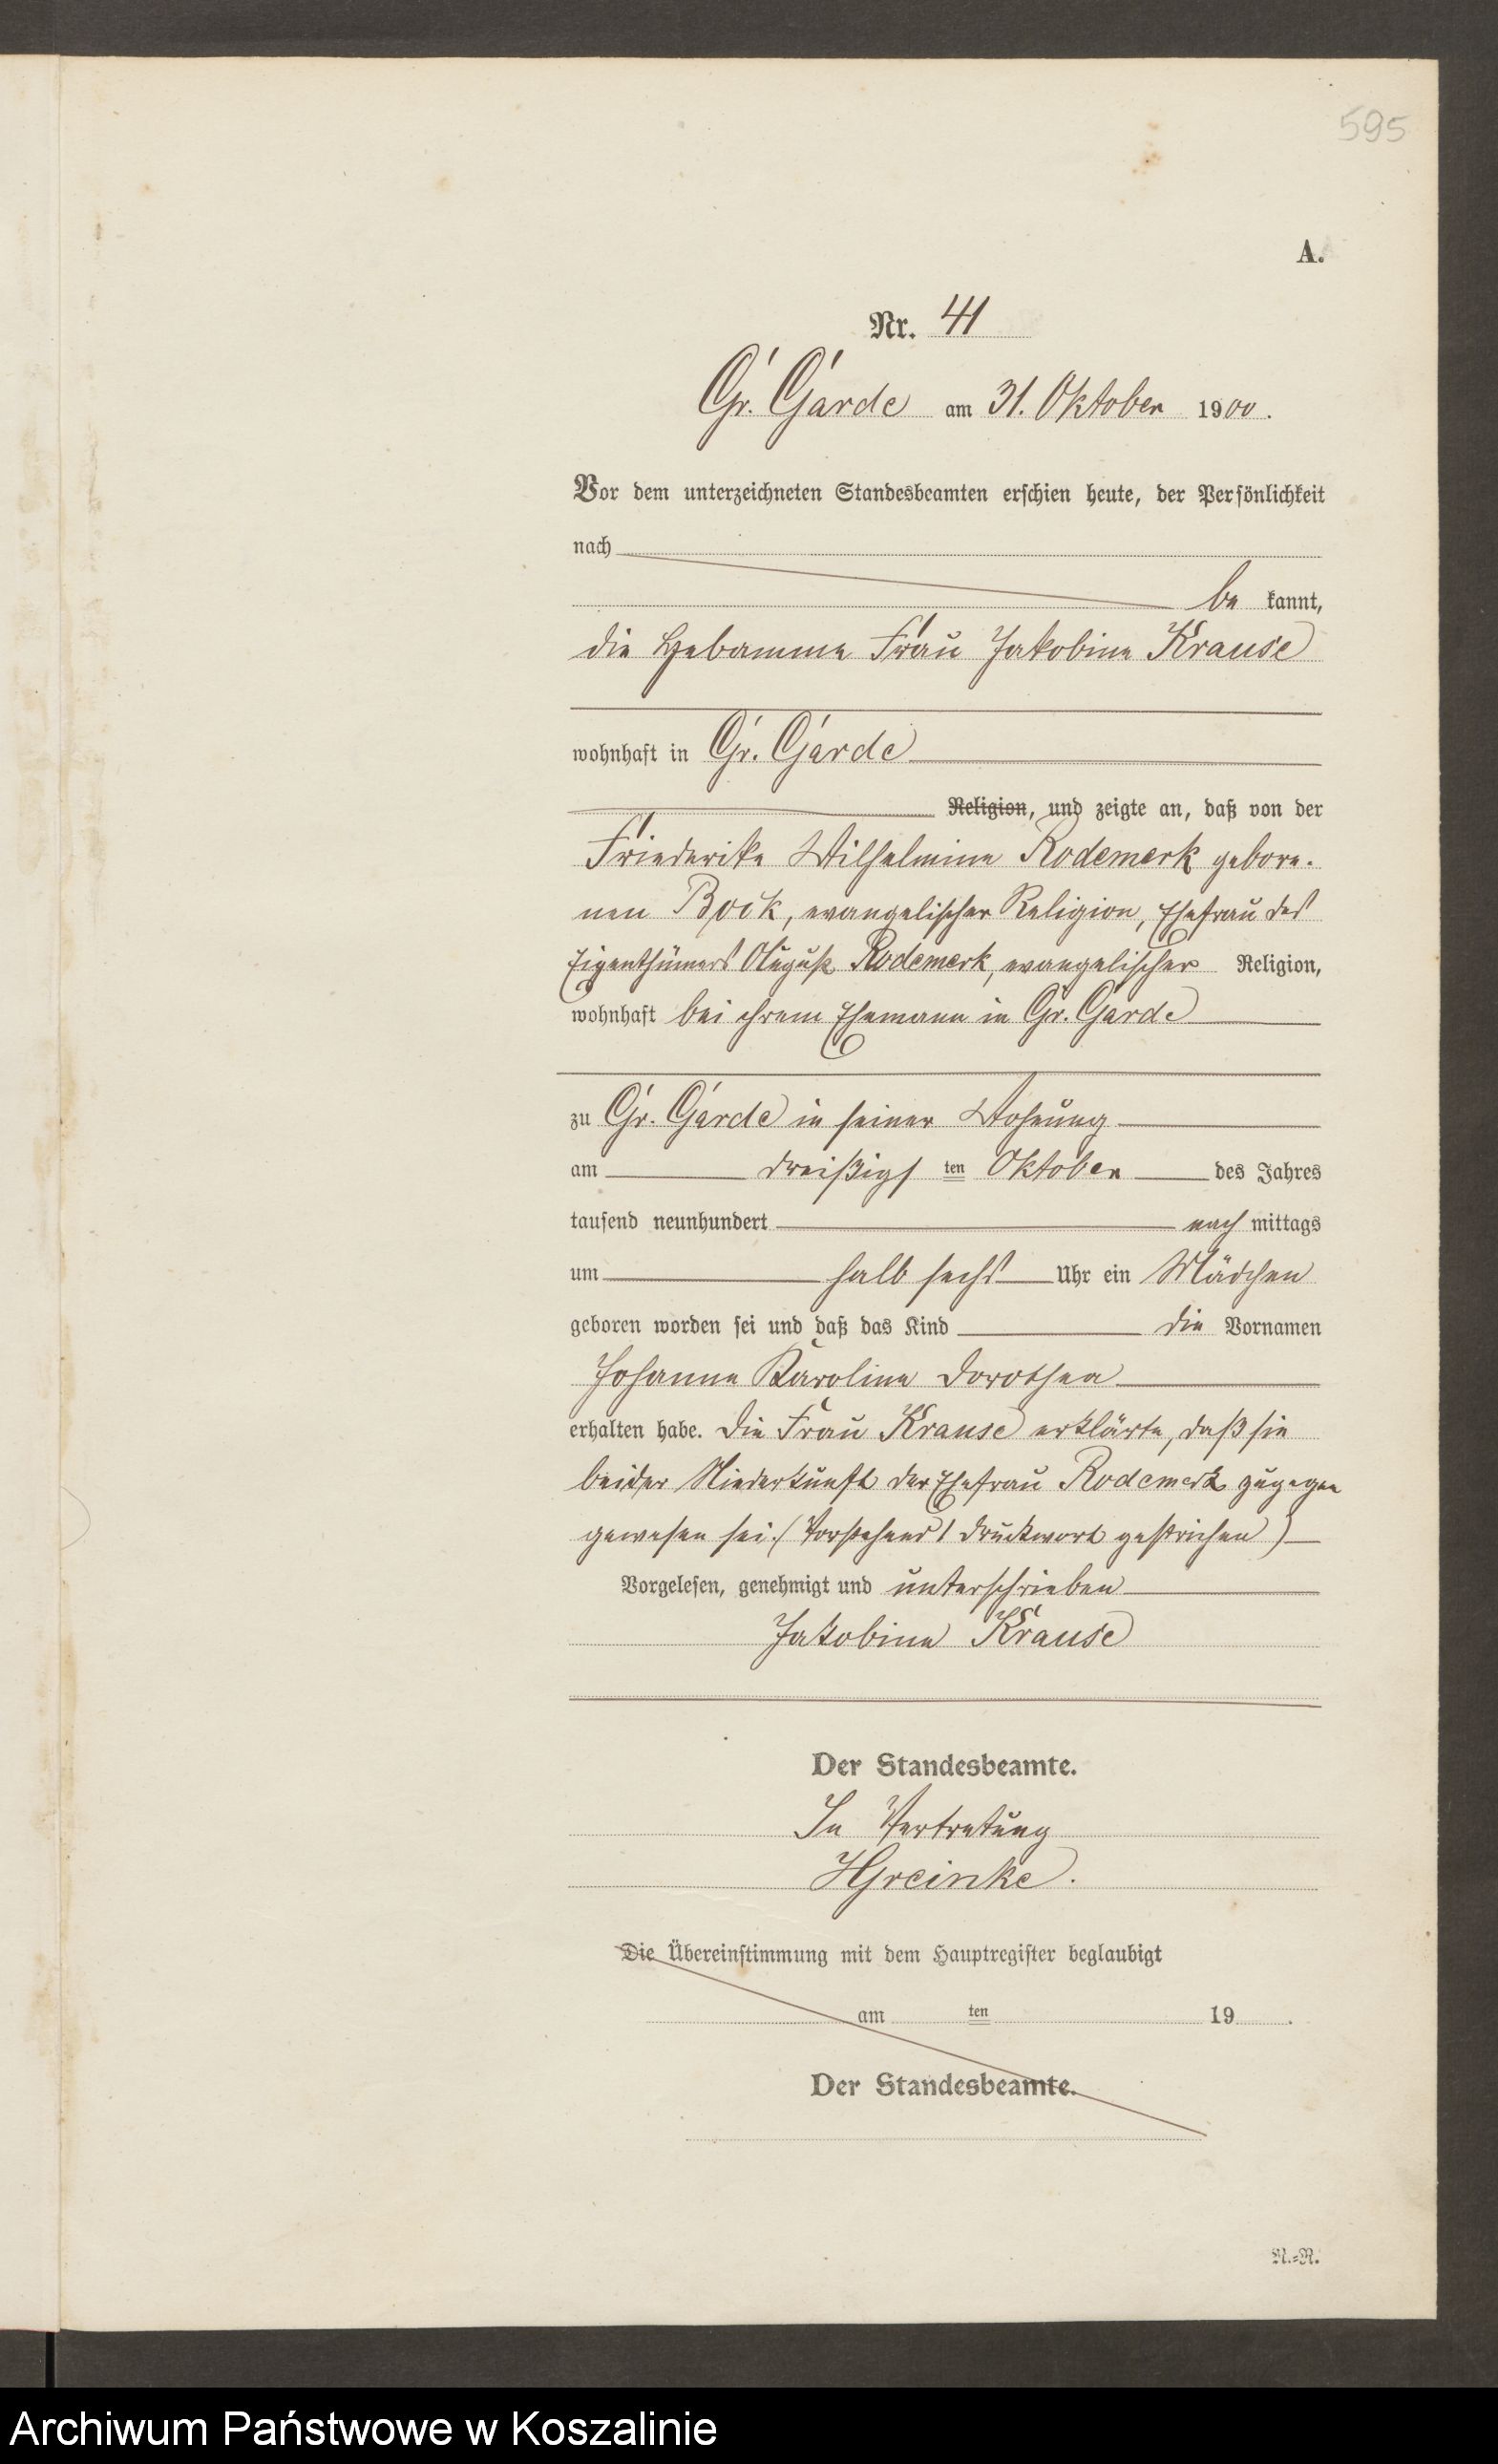 595
A.
Nr. 41
Gr. Garde am 31. Oktober 1900.
Vor dem unterzeichneten Standesbeamten erschien heute, der Persönlichkeit
nach
be kannt,
die Hebamme Frau Jakobine Krause
wohnhaft in Gr. Garde
Religion, und zeigte an, daß von der
Friederike Wilhelmine Rodemerk gebore-
nen Bock, evangelischer Religion, Ehefrau des
Eigenthümers August Rodemerk, evangelischer Religion,
wohnhaft bei ihrem Ehemann in Gr. Garde
zu Gr. Garde in seiner Wohnung
am dreißigs ten Oktober des Jahres
tausend neunhundert nach mittags
um halb sechs Uhr ein Mädchen
geboren worden sei und daß das Kind die Vornamen
Johanne Karoline Dorothea
erhalten habe. Die Frau Krause erklärte, daß sie
bei der Niederkunft der Ehefrau Rodemerk zugegen
gewesen sei. (Vorstehend 1 Druckwort gestrichen)
Vorgelesen, genehmigt und unterschrieben
Jakobine Krause
Der Standesbeamte.
In Vertretung
HGreinke.
Die Übereinstimmung mit dem Hauptregister beglaubigt
am ten 19 .
Der Standesbeamte.
N.=R.
Archiwum Państwowe w Koszalinie